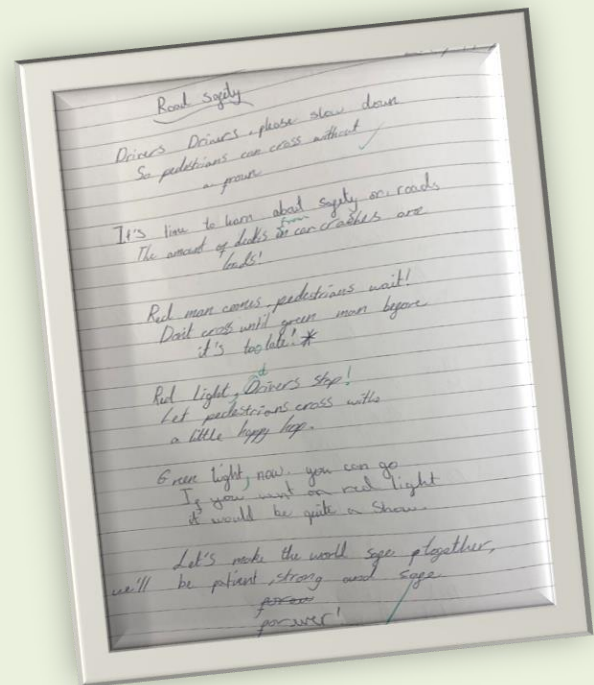 Road safety
Drivers Drivers, please slow down
So pedestrians can cross without
a frown
It's time to learn about safety on roads
The amount of deaths from car crashes are
loads!
Red man comes, pedestrians wait!
Don't cross until green man before
it's too late! *
Red light, drivers stop!
Let pedestrians cross with
a little happy hop.
Green light, now you can go
If you went on red light
it would be quite a show.
Let's make the world safe together,
we'll be patient, strong and safe
forever!